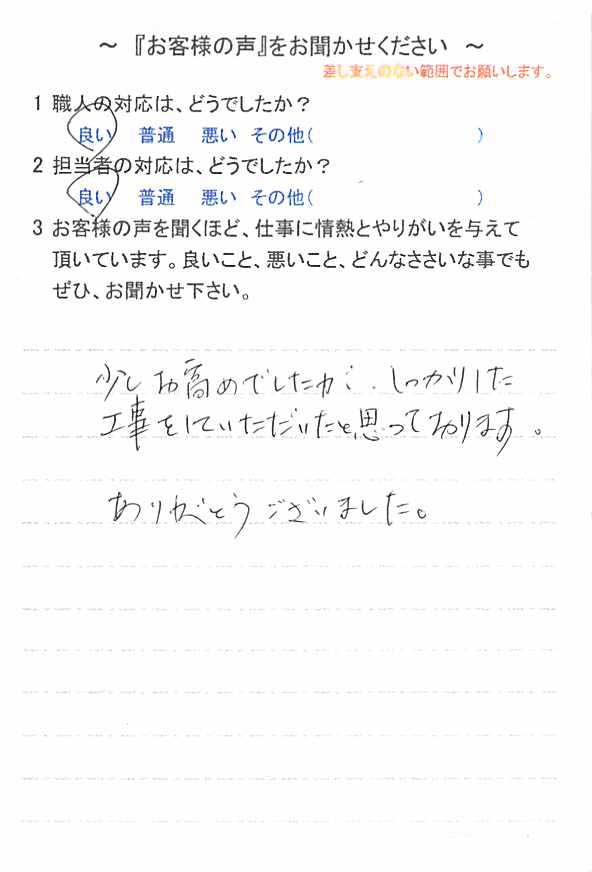 ～ 『お客様の声』をお聞かせください ～
差し支えのない範囲でお願いします。
1 職人の対応は、どうでしたか？
良い 普通 悪い その他( )
2 担当者の対応は、どうでしたか？
良い 普通 悪い その他( )
3 お客様の声を聞くほど、仕事に情熱とやりがいを与えて
頂いています。良いこと、悪いこと、どんなささいな事でも
ぜひ、お聞かせ下さい。
少しお高めでしたが、しっかりした
工事をしていただいたと思っております。
ありがとうございました。